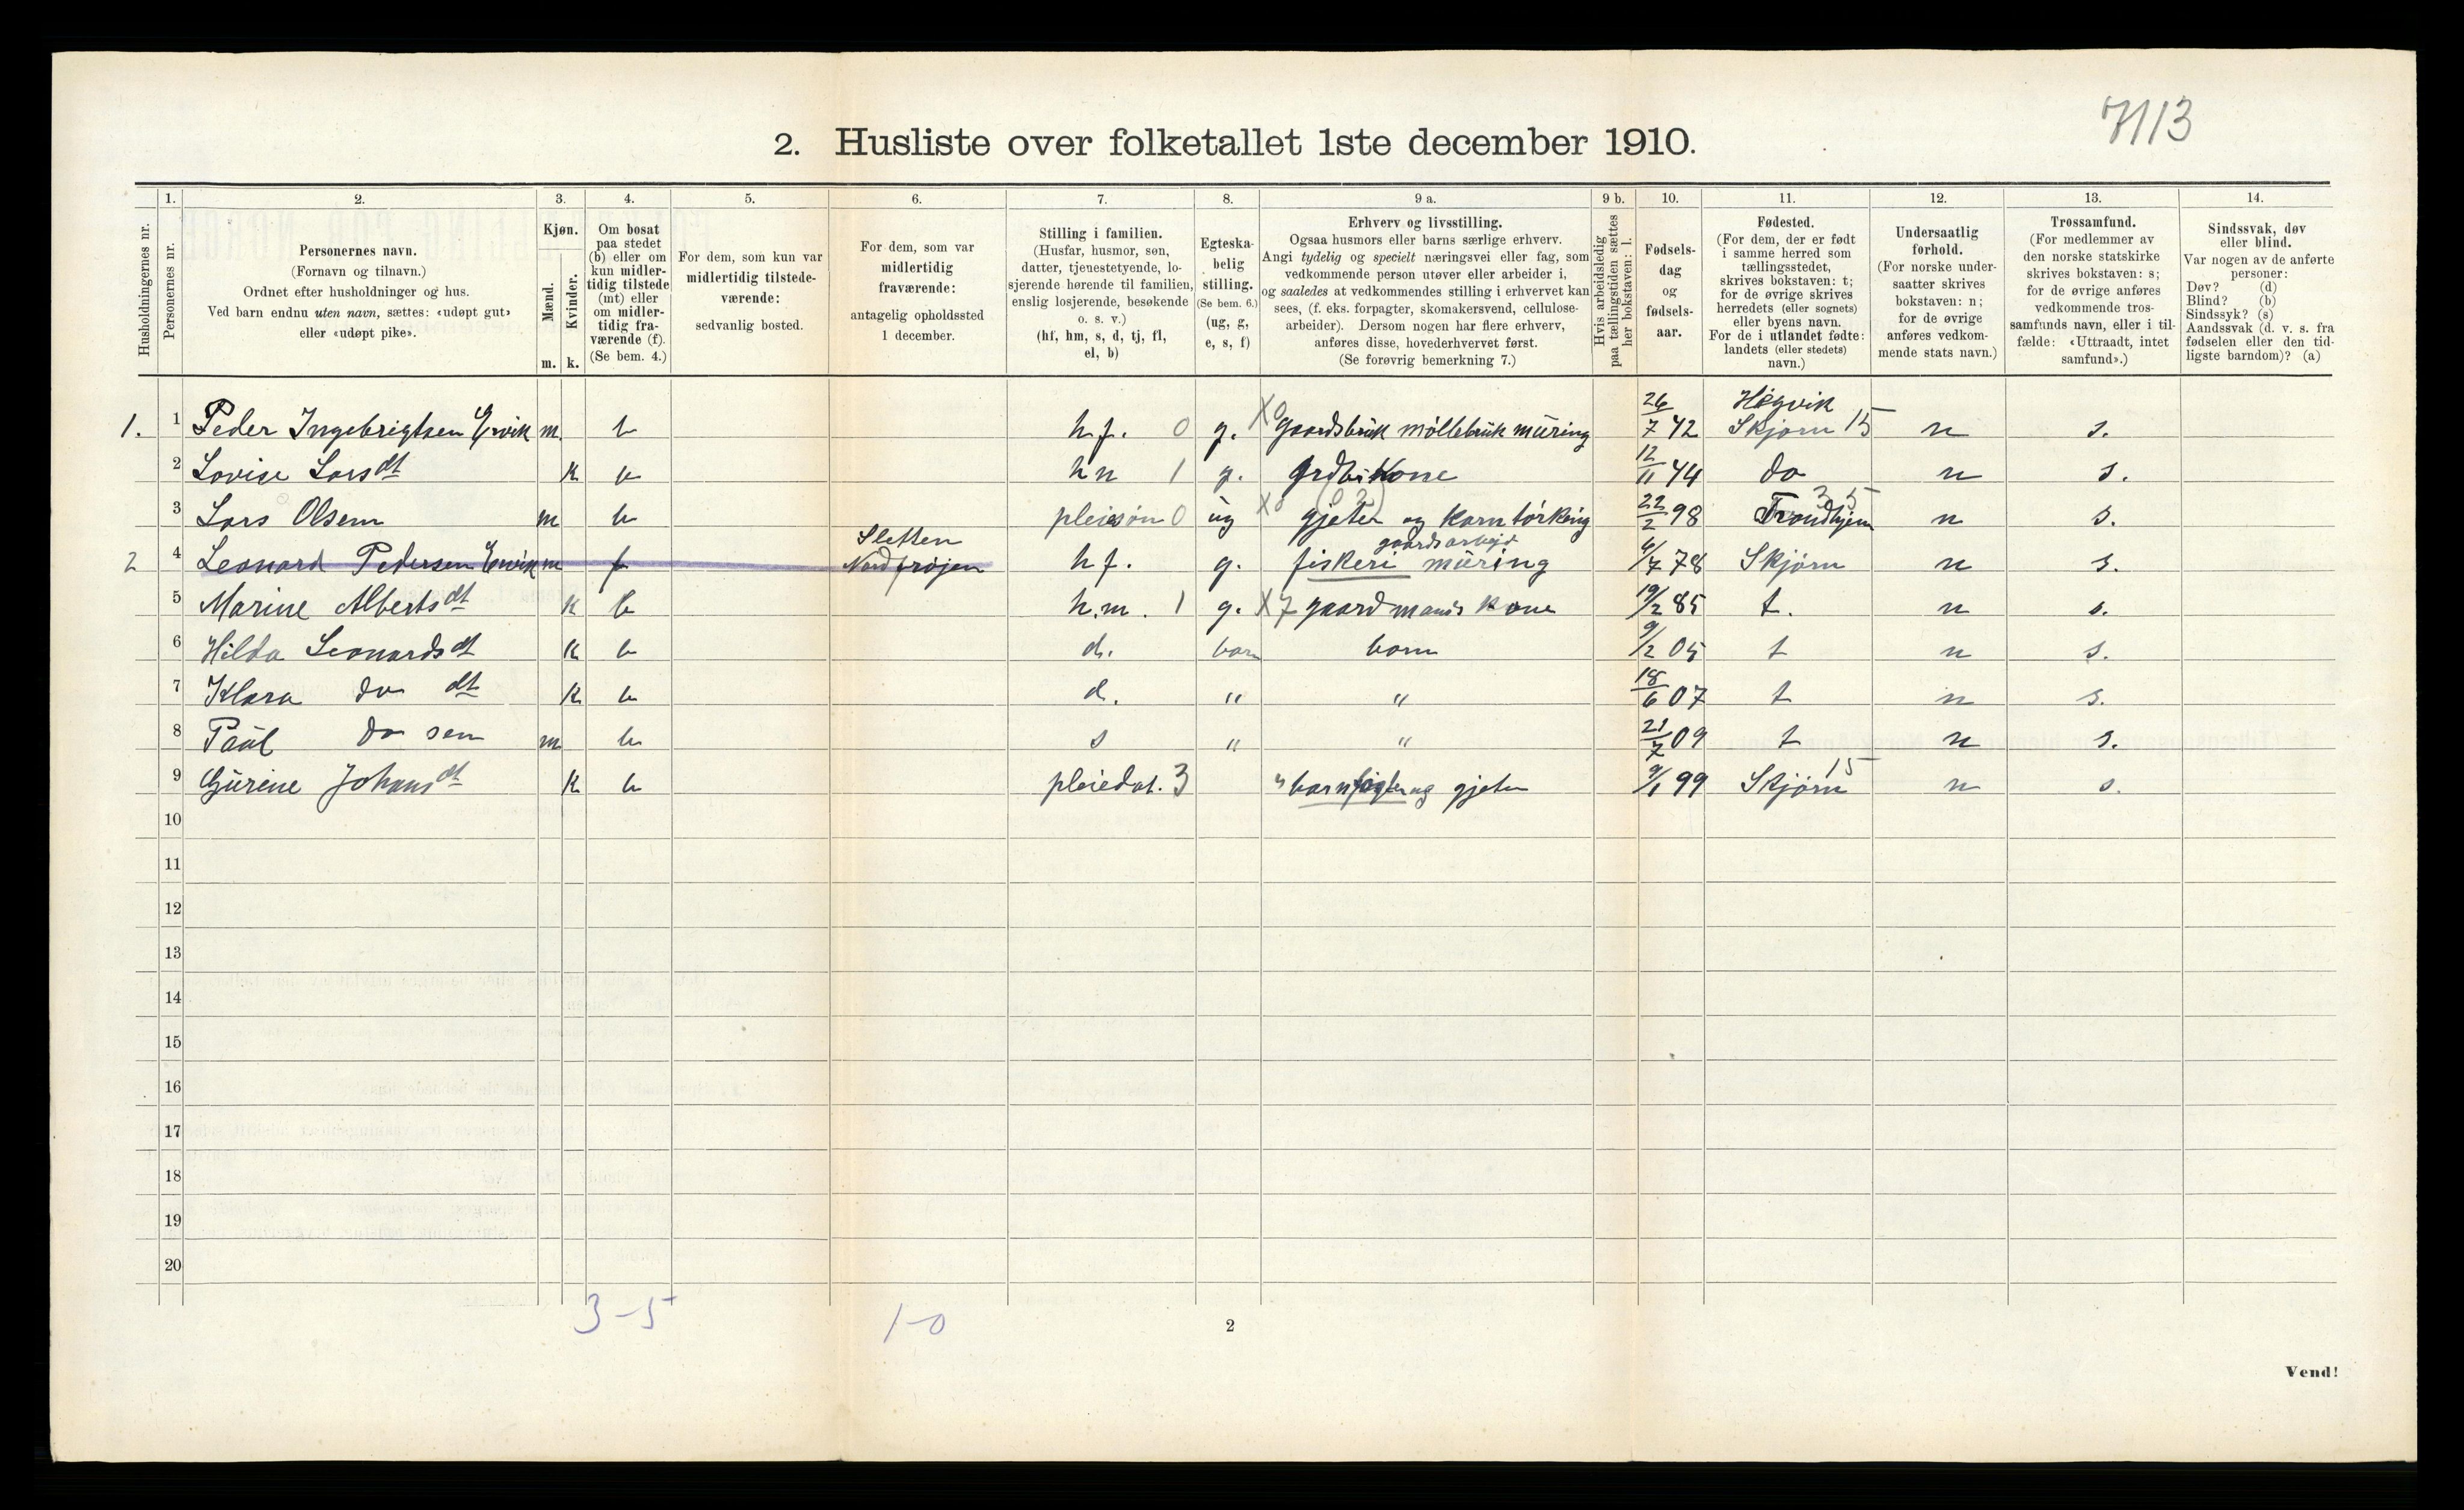 7113
2. Husliste over folketallet 1ste december 1910.
Husholdningernes nr.
1.
Personernes nr.
2.
Personernes navn.
(Fornavn og tilnavn.)
Ordnet efter husholdninger og hus.
Ved barn endnu uten navn, sættes: «udøpt gut»
eller «udøpt pike».
3.
Kjøn.
Mænd.
Kvinder.
m. k.
4.
Om bosat
paa stedet
(b) eller om
kun midler-
tidig tilstede
(mt) eller
om midler-
tidig fra-
værende (f).
(Se bem. 4.)
5.
For dem, som kun var
midlertidig tilstede-
værende:
sedvanlig bosted.
6.
For dem, som var
midlertidig
fraværende:
antagelig opholdssted
1 december.
7.
Stilling i familien.
(Husfar, husmor, søn,
datter, tjenestetyende, lo-
sjerende hørende til familien,
enslig losjerende, besøkende
o. s. v.)
(hf, hm, s, d, tj, fl,
el, b)
8.
Egteska-
belig
stilling.
(Se bem. 6.)
(ug, g,
e, s, f)
9 a.
Erhverv og livsstilling.
Ogsaa husmors eller barns særlige erhverv.
Angi tydelig og specielt næringsvei eller fag, som
vedkommende person utøver eller arbeider i,
og saaledes at vedkommendes stilling i erhvervet kan
sees, (f. eks. forpagter, skomakersvend, cellulose-
arbeider). Dersom nogen har flere erhverv,
anføres disse, hovederhvervet først.
(Se forøvrig bemerkning 7.)
9 b.
Hvis arbeidsledig
paa tællingstiden sættes
her bokstaven: l.
10.
Fødsels-
dag
og
fødsels-
aar.
11.
Fødested.
(For dem, der er født
i samme herred som
tællingsstedet,
skrives bokstaven: t;
for de øvrige skrives
herredets (eller sognets)
eller byens navn.
For de i utlandet fødte:
landets (eller stedets)
navn.)
12.
Undersaatlig
forhold.
(For norske under-
saatter skrives
bokstaven: n;
for de øvrige
anføres vedkom-
mende stats navn.)
13.
Trossamfund.
(For medlemmer av
den norske statskirke
skrives bokstaven: s;
for de øvrige anføres
vedkommende tros-
samfunds navn, eller i til-
fælde: «Uttraadt, intet
samfund».)
14.
Sindssvak, døv
eller blind.
Var nogen av de anførte
personer:
Døv? (d)
Blind? (b)
Sindssyk? (s)
Aandssvak (d. v. s. fra
fødselen eller den tid-
ligste barndom)? (a)
Høgvik
1. 1 Peder Ingebrigtsen Ervik m b h.f. 0 g. X0 gaardsbruk møllebruk müring 26/7 42 Skjørn 15 n s.
2 Lovise Larsdt k b hm 1 g. grdbr Kone 12/11 44 do n s.
3 Lars Olsen m b pleiesøn 0 ug X0 gjeter og korntørking 22/2 98 Trondhjem 35 n s.
Sletten gaardsarbeid
2 4 Leonard Pedersen Ervik m f Nordfrøjen h f. g. fiskeri müring 6/7 78 Skjørn n s.
5 Marine Albertsdt k b h.m. 1 g. X7 gaardmands kone 19/2 85 t. n s.
6 Hilda Leonardsdt k b d. barn barn 9/2 05 t n s.
7 Klara do dt k b d. " " 18/6 07 t n s.
8 Paül do sen m b s " " 21/7 09 t n s.
9 Gürine Johansdt k b pleiedat. 3 " og gjeter 9/1 99 Skjørn 15 n s.
10
11
12
13
14
15
16
17
18
19
20
3-5 1-0
2
Vend!